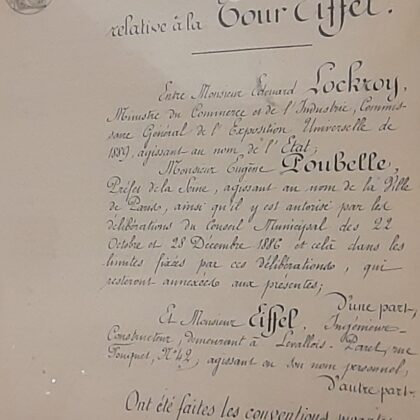 relative à la Tour Eiffel.
Entre Monsieur Edouard Lockroy,
Ministre du Commerce et de l'Industrie, Commis-
saire Général de l'Exposition Universelle de
1889, agissant au nom de l'Etat;
Monsieur Eugène Poubelle,
Préfet de la Seine, agissant au nom de la Ville
de Paris, ainsi qu'il y est autorisé par les
délibérations du Conseil Municipal des 22
Octobre et 28 Décembre 1886 et celà dans les
limites fixées par ces délibérations, qui
resteront annexées aux présentes;
D'une part,
Et Monsieur Eiffel, Ingénieur-
Constructeur, demeurant à Levallois-Perret, rue
Fouquet, N° 42, agissant en son nom personnel,
D'autre part.
Ont été faites les conventions suivantes